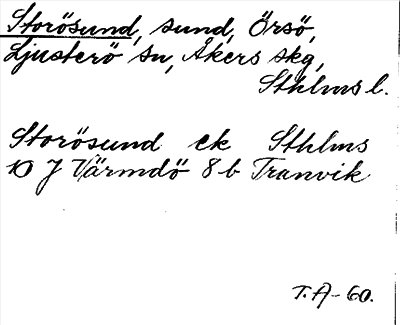 Storösund, sund, Örsö,
Ljusterö sn, Åkers skg,
Sthlms l.
Storösund ek Sthlms
10 J Värmdö 8 b Tranvik
T.A-60.